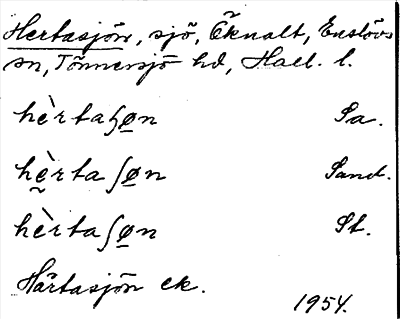 Hertasjön, sjö, Öknalt, Enslövs
sn, Tönnersjö hd, Hall. l.
hè̀rtaʃø̲n Sa.
hḛ̀rtaʃø̲n Sand.
hèrtaʃø̲n St.
Härtasjön ek.
1954.